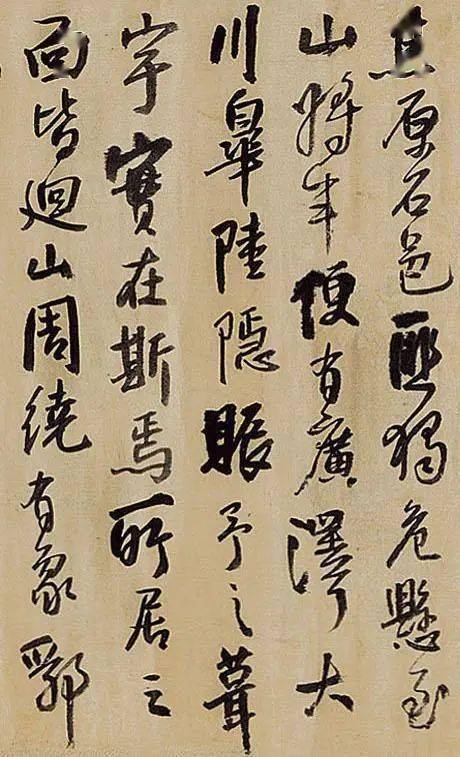 焦原石邑匪獨危懸至
山將半便有廣澤大
川皐陸隱賑予之葺
宇實在斯焉所居三
面皆迴山周繞有象郛